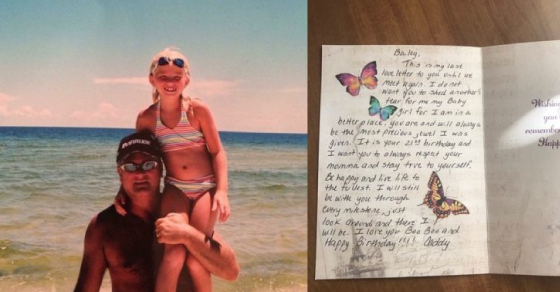 EVINRUDE
Bailey,
This is my last
love letter to you until we
meet again. I do not
want you to shed another
tear for me my Baby
girl for I am in a
better place. You are and will always
be the most precious jewel I was
given. It is your 21st birthday and
I want you to always respect your
momma and stay true to yourself.
Be happy and live life to
the fullest. I will still
be with you through
every milestone, just
look around and there I
will be. I love you Boo Boo and
Happy Birthday!!! Daddy
Wishing
you
remember
Happ